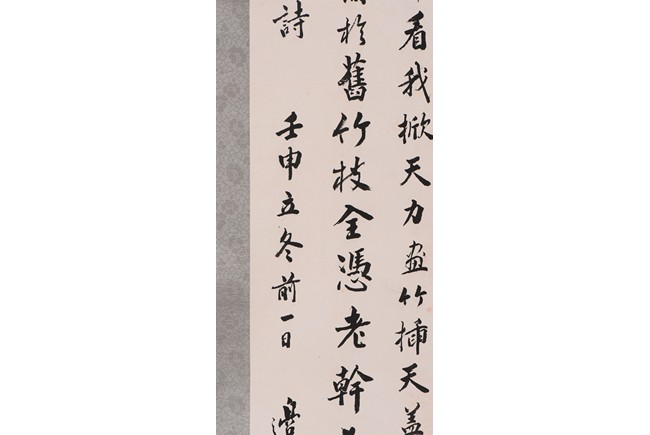 看我掀天力画竹插天盖
於舊竹枝全憑老幹
詩 壬申立冬前一日